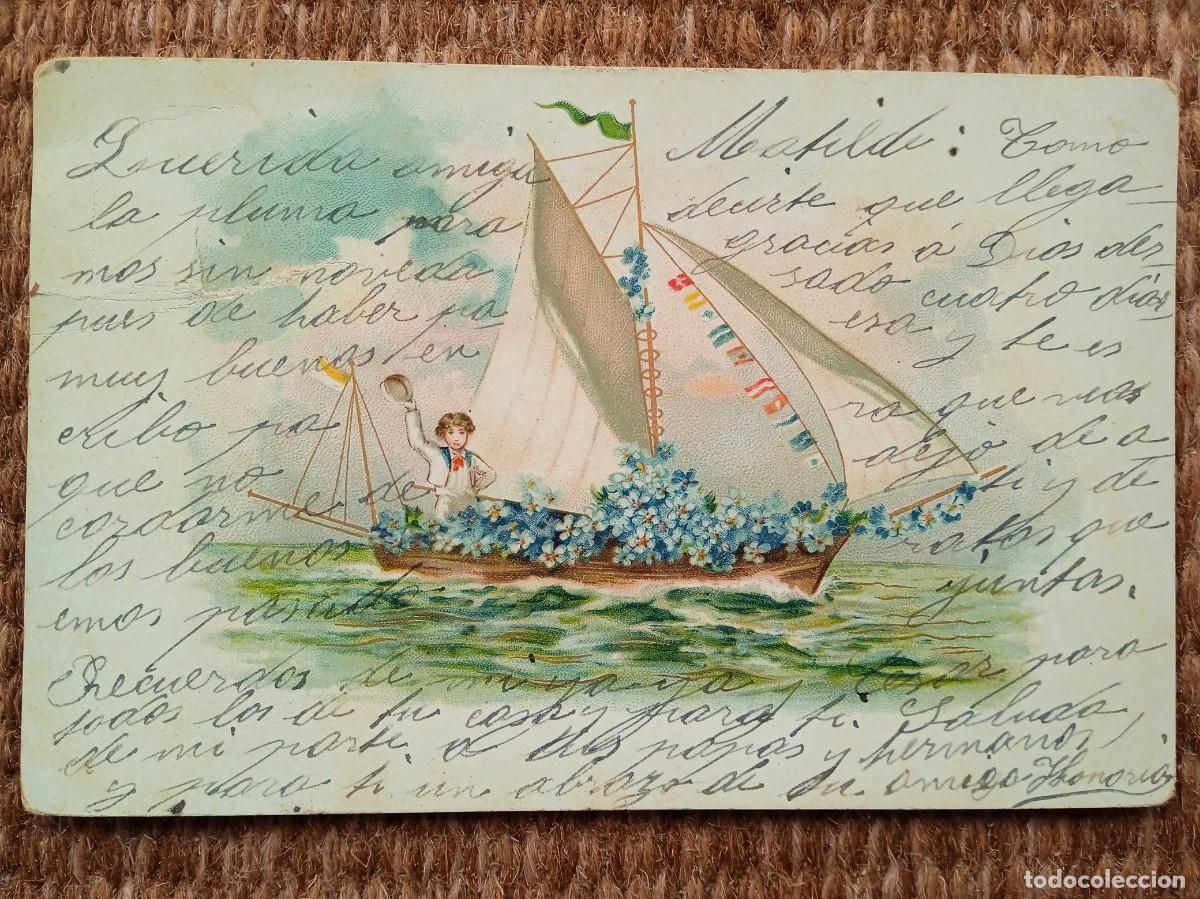 Querida amiga Matilde: Tomo
la pluma para decirte que llega-
mos sin noveda gracias á Dios des
pues de haber pasado cuatro dias
muy buenos en esa y te es
cribo para que veas
que no dejo de a
cordarme de ti y de
los buenos ratos que
emos pasado juntas.
Recuerdos de mi yaya y Cesar para
todos los de tu casa y para ti. Saluda
de mi parte a tus papas y hermanos,
y para ti un abrazo de tu amiga Honoria
todocoleccion